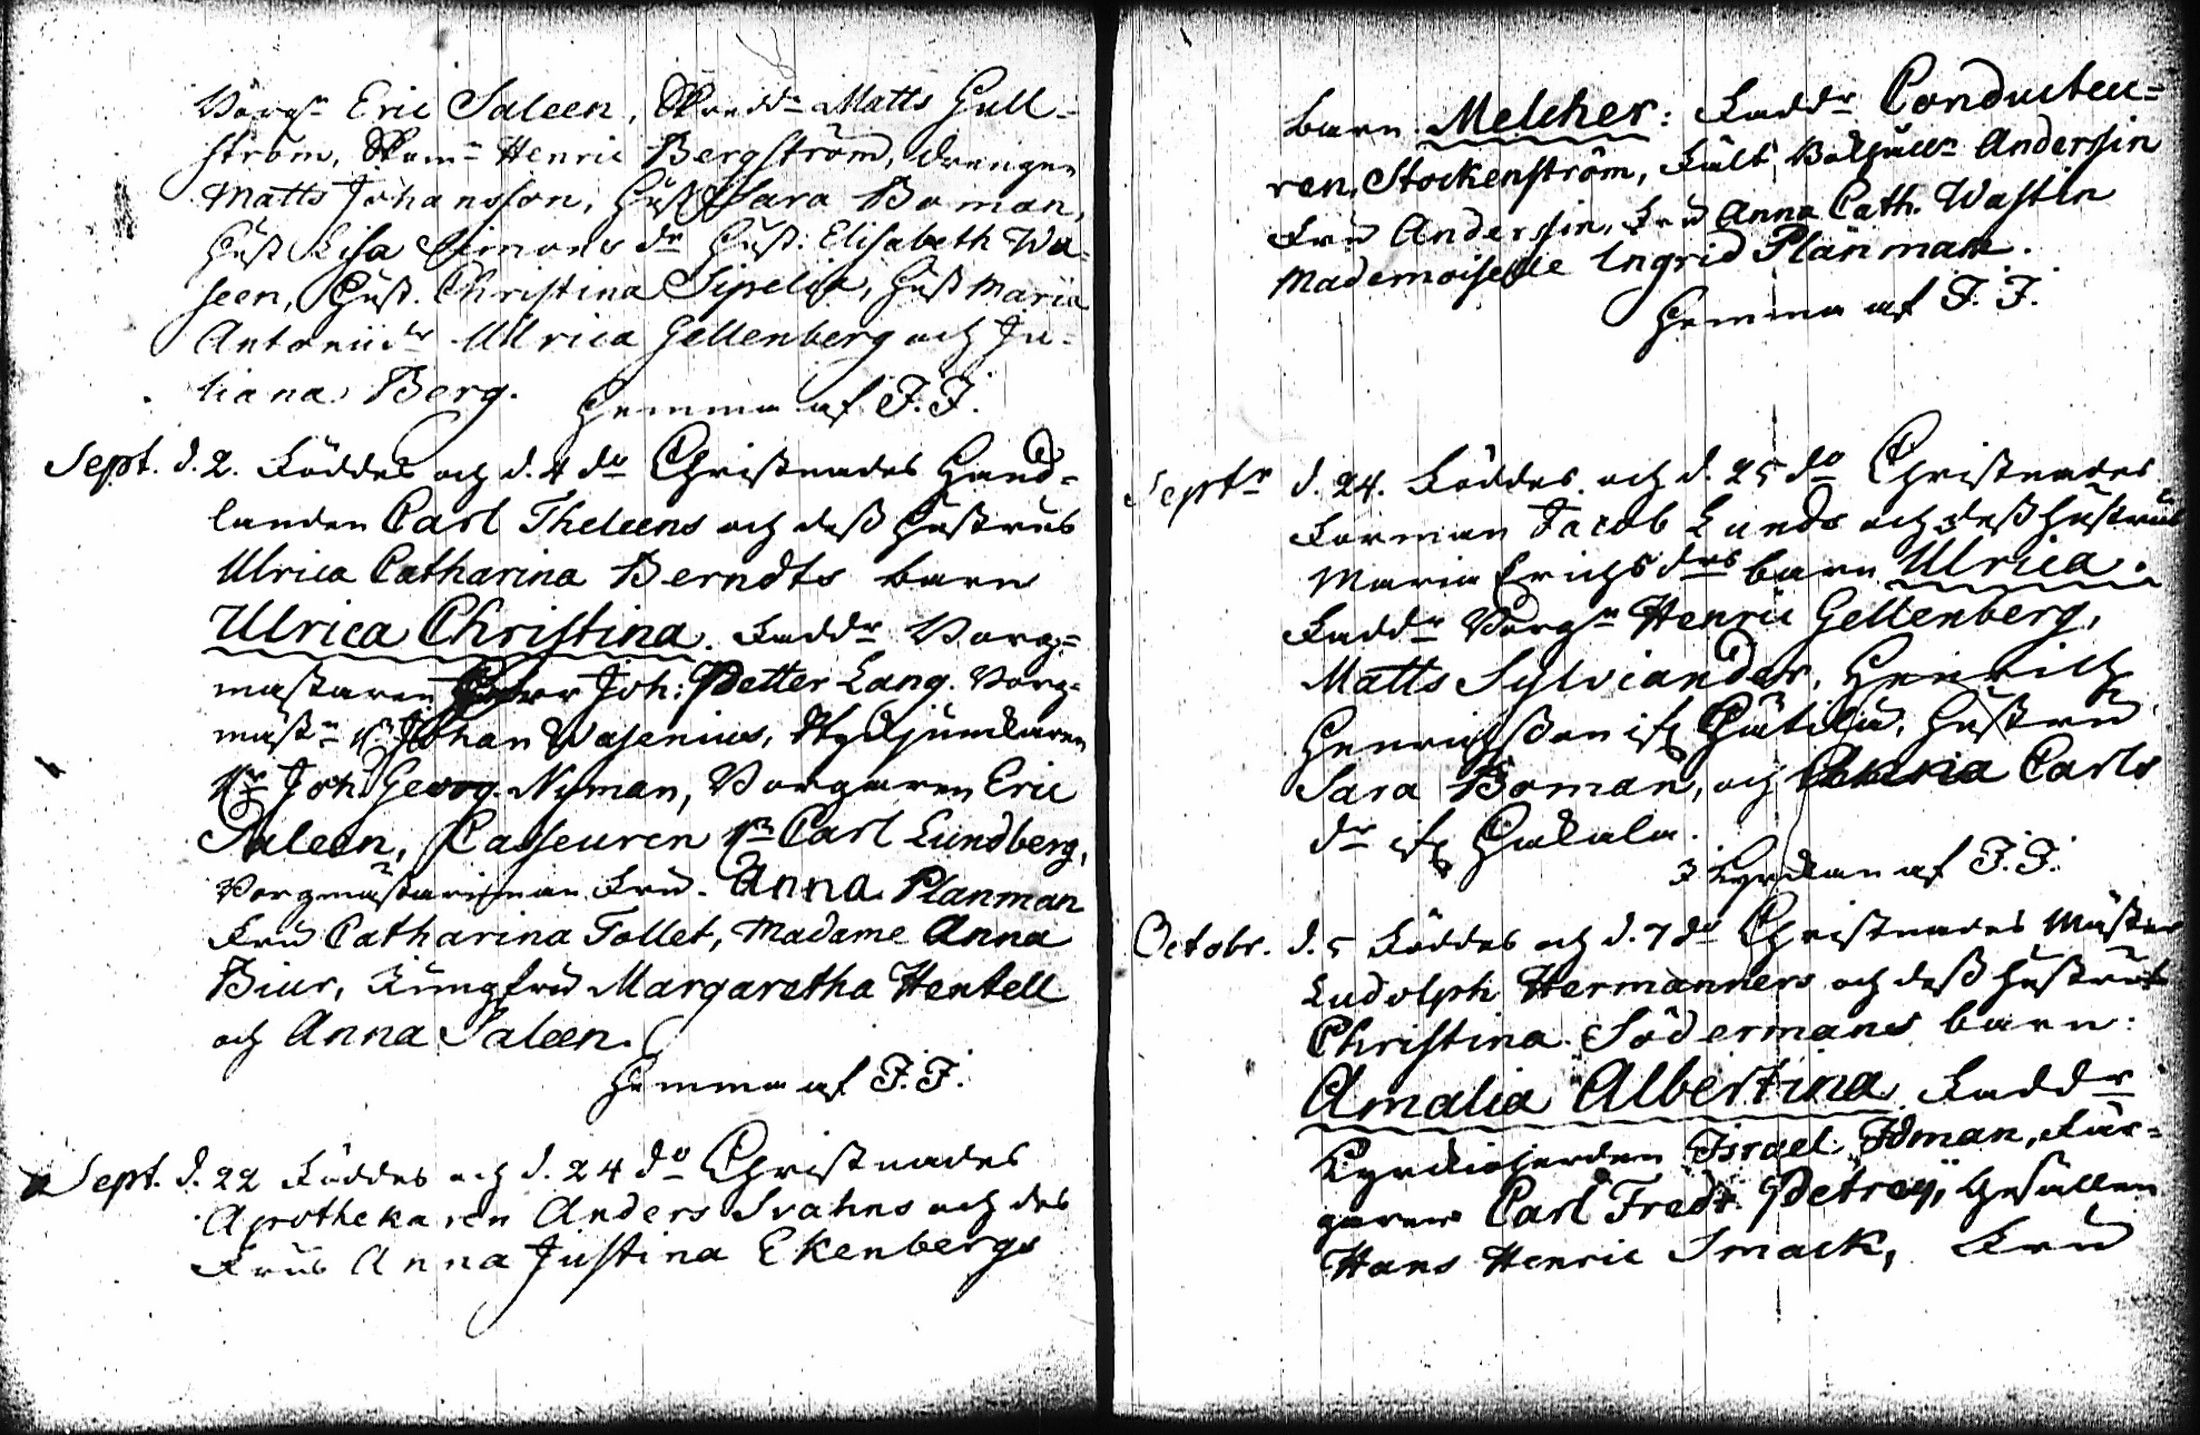 Borg:n Eric Saleen, Skredd:n Matts Gull-
ström, Skom:n Henric Bergström, drengen
Matts Johansson, Hust. Sara Boman,
Hust Lisa Simons dr Hust: Elisabeth Wa-
seen, Hust. Christina Sipelia, Hust Maria
Antonii dr Ulrica Gellenberg och Ju-
liana Berg.
Hemma af J. J.
Sept. d. 2. Föddes och d. 4 do Christnades Hand-
landen Carl Theleens och dess Hustrus
Ulrica Catharina Berndts barn
Ulrica Christina. Faddr Borg-
mästaren Herr Joh: Petter Lang. Borg-
mäst:n Hr Johan Wasenius,
Hr Joh. Georg. Nyman, Borgaren Eric
Saleen, Casseuren Hr Carl Lundberg,
Borgmästarinnan Fru Anna Planman
Fru Catharina Tollet, Madame Anna
Biur, Jungfru Margaretha Hentell
och Anna Saleen.
Hemma af J. J.
Sept. d. 22 Föddes och d. 24 do Christnades
Apothekaren Anders Svahns och des
Frus Anna Justina Ekenbergs
barn Melcher: Faddr Conducteu-
ren, Stockenström, Fält Andersin
Fru Andersin, Fru Anna Cath. Wastin
Mademoiselle Ingrid Planman.
Hemma af J. J.
Septr d. 24. Föddes och d. 25 do Christnades
Forman Jacob Lunds och dess Hustrus
Maria Erichs drs barn Ulrica.
Faddr Borg:n Henric Gellenberg,
Matts Sylviander, Henrich
Henrichsson ifr Hustru
Sara Boman, och Carls
dr ifr
i Kyrckan af J. J.
Octobr. d. 5 Föddes och d. 7 do Christnades Mäster
Ludolph Hermanners och dess Hustrus
Christina Södermans barn:
Amalia Albertina. Faddr
Kyrckioherden Israel Idman, Fär-
garen Carl Fredr. Petreÿ, Gesällen
Hans Henric Smack, Fru